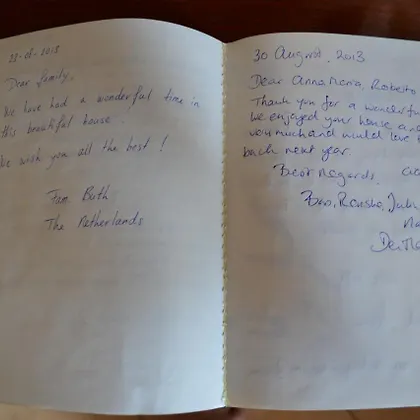 23-08-2013
Dear family,
We have had a wonderful time in
this beautiful house.
We wish you all the best !
Fam. Buth
The Netherlands
30 August 2013
Dear Anna Maria, Roberto
Thank you for a wonderful
We enjoyed your house and
very much and would love t
back next year
Best Regards,
Bas, Renske, Jul